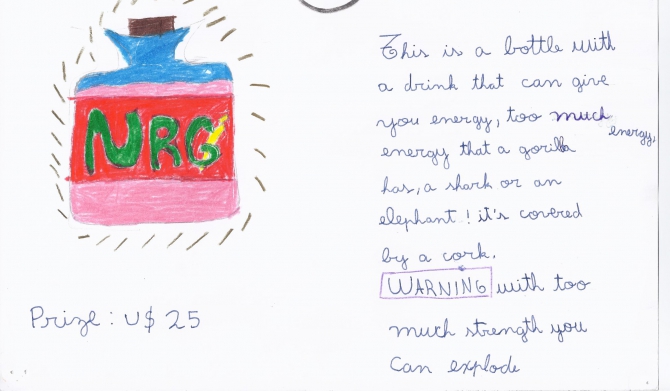 NRG
Prize: U$ 25
This is a bottle with
a drink that can give
you energy, too much
energy,
energy that a gorilla
has, a shark or an
elephant! it's covered
by a cork.
WARNING with too
much strength you
can explode